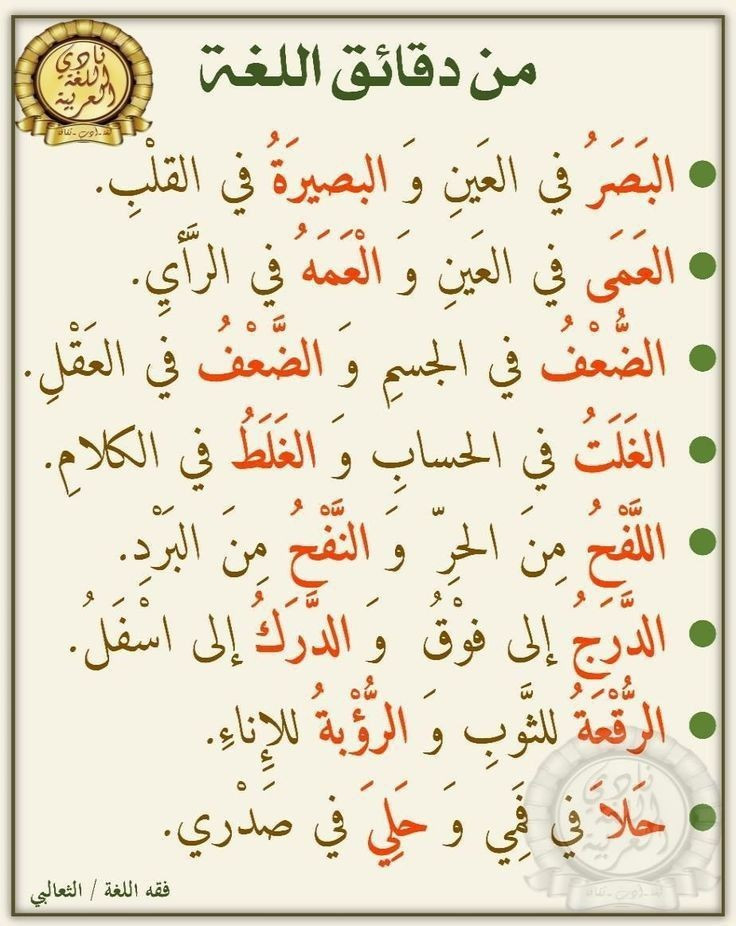 نادي
اللغة
العربية
من دقائق اللغة
البَصَرُ في العَينِ وَ البصيرَةُ في القلْبِ.
العَمَى في العَينِ وَ الْعَمَهُ في الرَّأيِ.
الضُّعْفُ في الجسمِ وَ الضَّعْفُ في العَقْلِ.
الغَلَتُ في الحسابِ وَ الغَلَطُ في الكلامِ.
اللَّفْحُ مِنَ الحرِّ وَ النَّفْحُ مِنَ البَرْدِ.
الدَّرَجُ إلى فوْقُ وَ الدَّرَكُ إلى اسْفَلُ.
الرُّقْعَةُ للثَّوَبِ وَ الرُّؤْبةُ للإِناءِ.
حَلاَ في فَمِي وَ حَلِيَ في صَدْري.
نادي
اللغة
العربية
فقه اللغة / الثعالبي